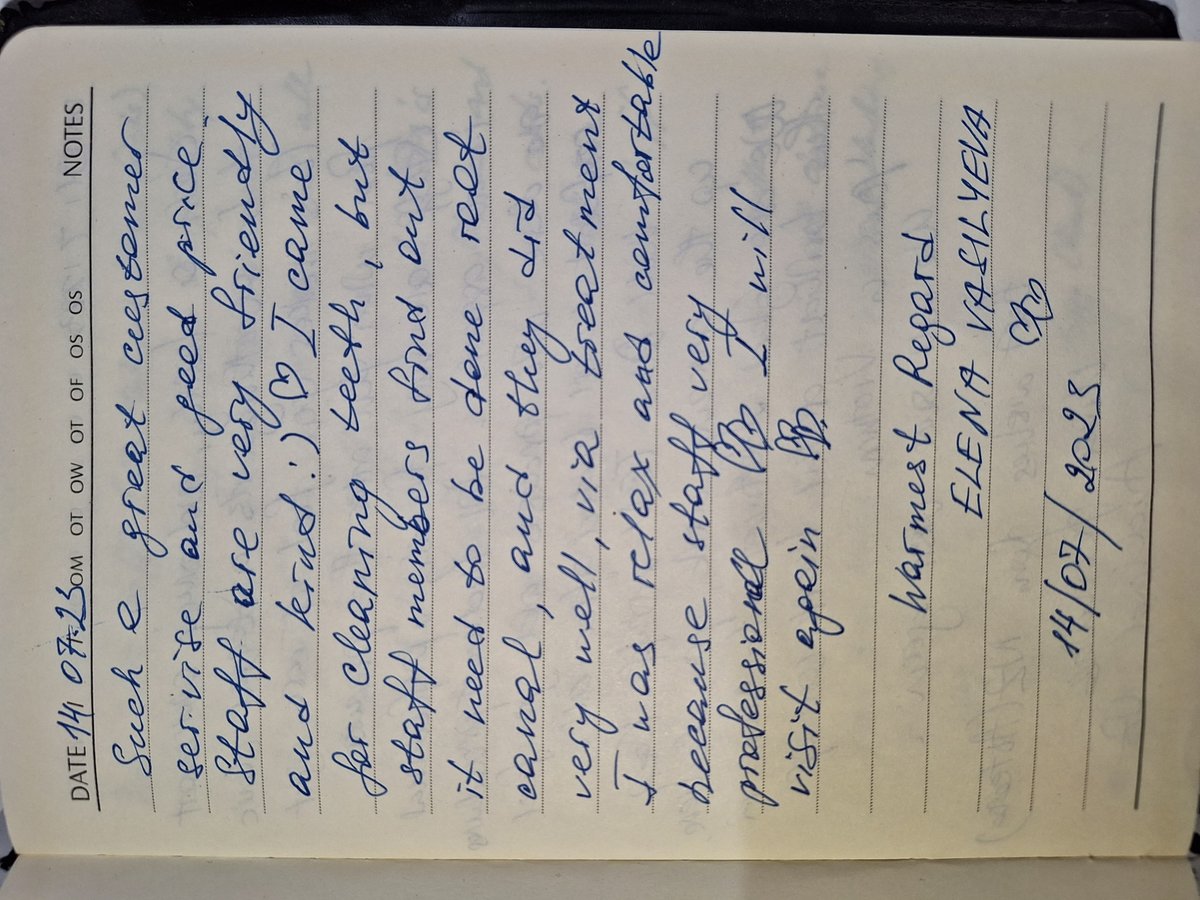 DATE 14/07.23 OM OT OW OT OF OS OS NOTES
Such a great customer
servise and good price.
Staff are very friendly
and kind :) I came
for cleaning teeth, but
staff members find out
it need to be done root
canal, and they did
very well, via treatment
I was relax and comfortable
because staff very
professional I will
visit again
Warmest Regard
ELENA VASILYEVA
14/07/2023